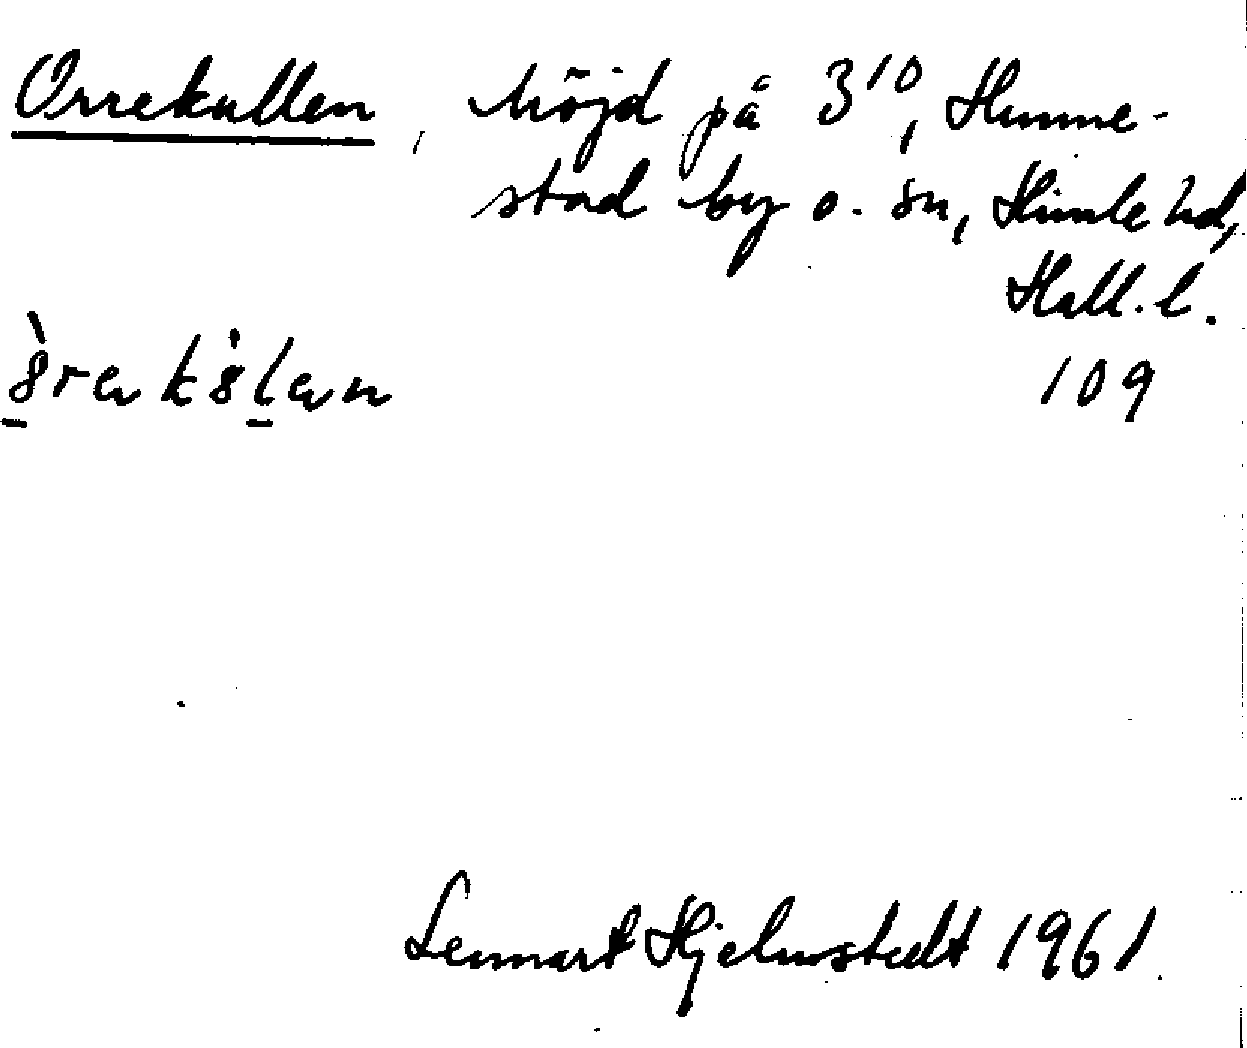 Orrekullen, höjd på 3¹⁰, Hunne-
stad by o. sn, Himle hd,
Hall. l.
109
Lennart Hjelmstedt 1961.